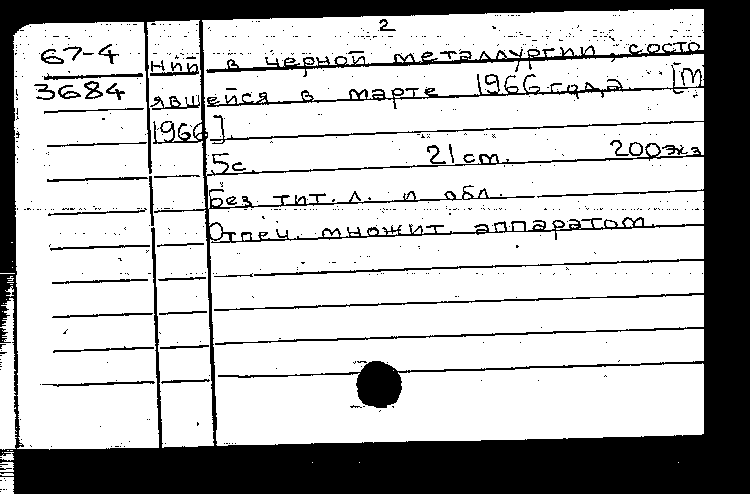 2
67-4 ний в черной металлургии, состо
3684 явшейся в марте 1966 года [М
1966].
5с. 21cm. 200экз
Без тит. л. и обл.
Отпеч. множит. аппаратом